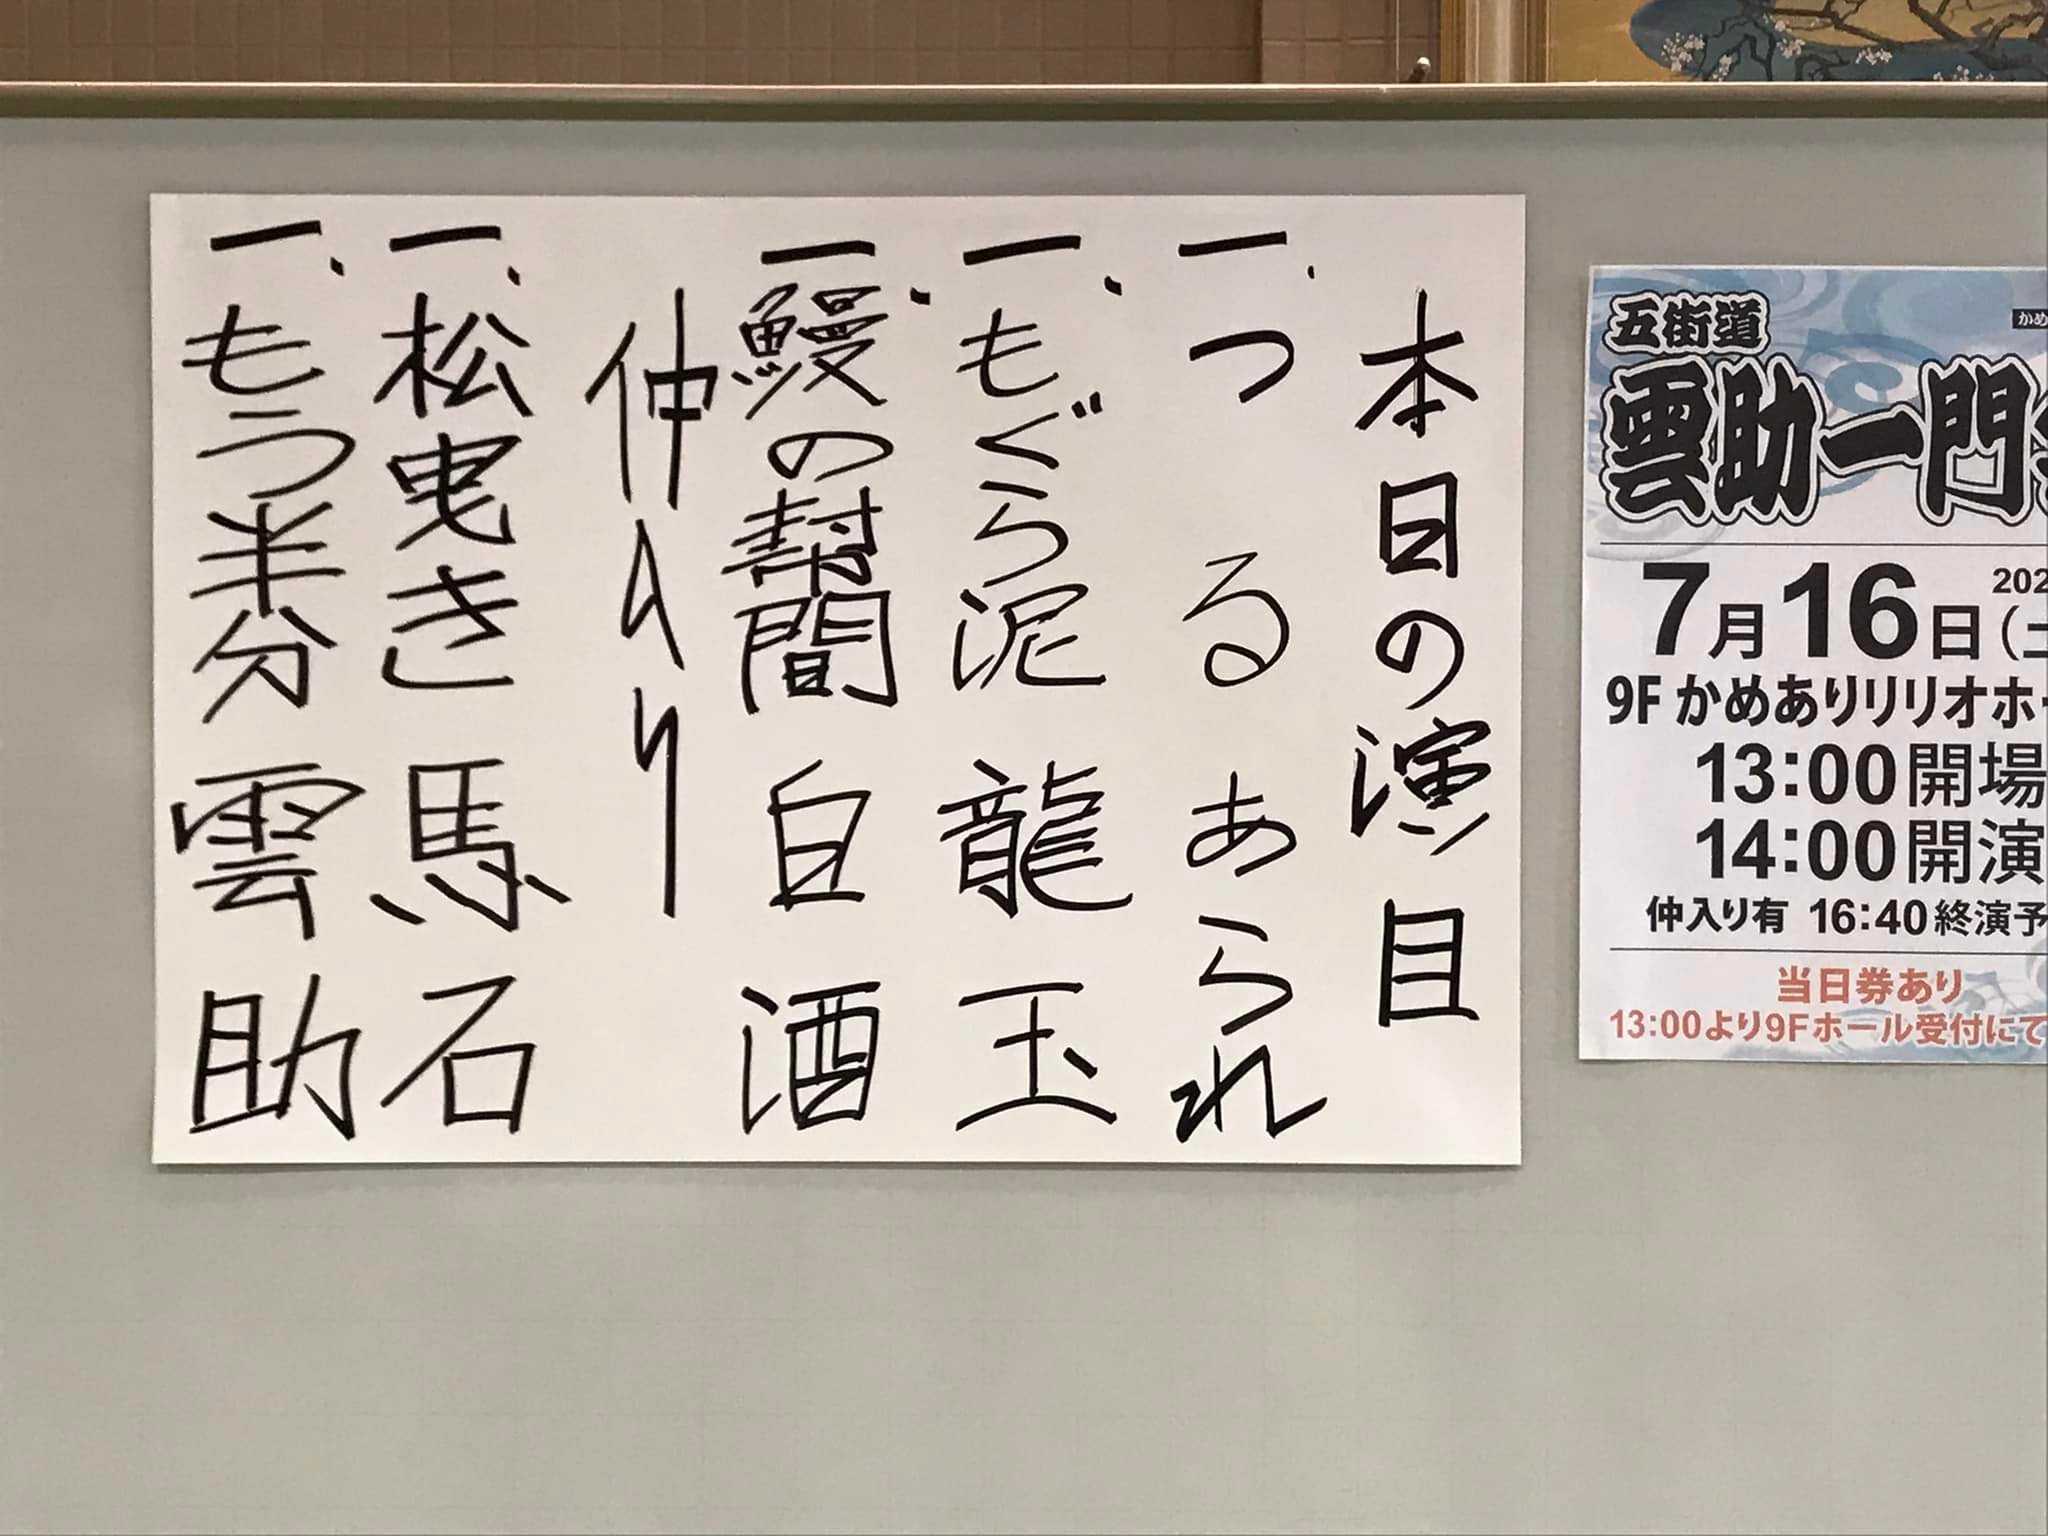 本日の演目
一、つる あられ
一、もぐら泥 龍玉
一、鰻の幇間 白酒
仲入り
一、松曳き 馬石
一、もう半分 雲助
五街道
かめ
雲助一門
202
7月16日(土
9F かめありリリオホー
13:00開場
14:00開演
仲入り有 16:40終演予
当日券あり
13:00より9Fホール受付にて